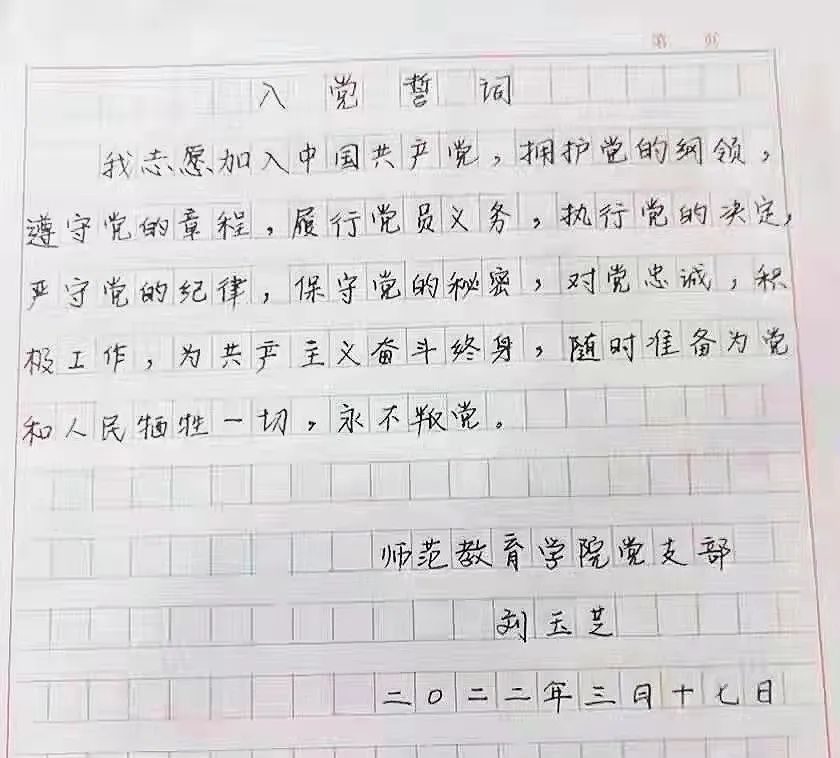 第 页
入党誓词
我志愿加入中国共产党，拥护党的纲领，
遵守党的章程，履行党员义务，执行党的决定，
严守党的纪律，保守党的秘密，对党忠诚，积
极工作，为共产主义奋斗终身，随时准备为党
和人民牺牲一切，永不叛党。
师范教育学院党支部
刘玉芝
二〇二二年三月十七日